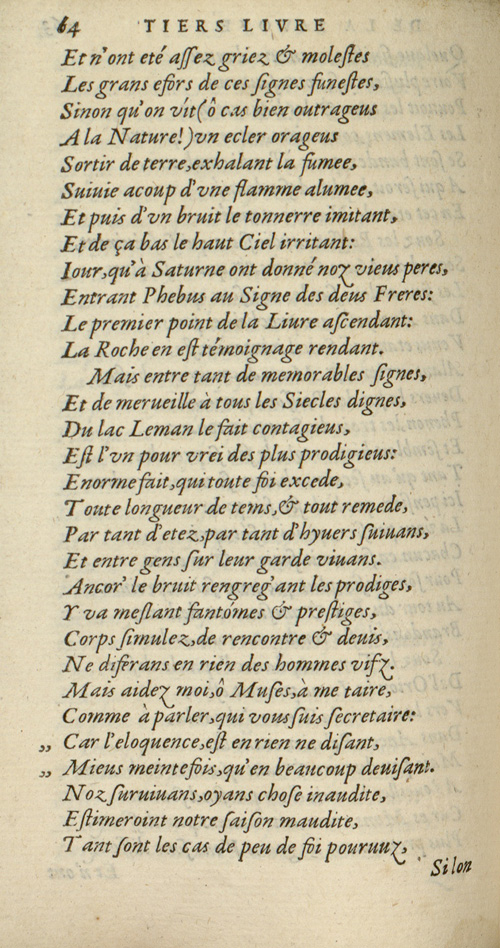 64 TIERS LIVRE
Et n'ont eté aſſez griez & moleſtes
Les grans eforſ de ces ſignes funeſtes,
Sinon qu'on vìt(ô cas bien outrageus
A la Nature!)vn ecler orageus
Sortir de terre,exhalant la fumee,
Suiuie acoup d'vne flamme alumee,
Et puis d'vn bruit le tonnerre imitant,
Et de ça bas le haut Ciel irritant:
Iour,qu'à Saturne ont donné noz vieus peres,
Entrant Phebus au Signe des deus Freres:
Le premier point de la Liure aſcendant:
La Roche en eſt témoignage rendant.
Mais entre tant de memorables ſignes,
Et de merueille à tous les Siecles dignes,
Du lac Leman le fait contagieus,
Eſt l'vn pour vrei des plus prodigieus:
Enorme fait,qui toute foi excede,
Toute longueur de tems,& tout remede,
Par tant d'etez,par tant d'hyuers ſuiuans,
Et entre gens ſur leur garde viuans.
Ancor' le bruit rengreg'ant les prodiges,
Y va meſlant fantómes & preſtiges,
Corps ſimulez,de rencontre & deuis,
Ne diferans en rien des hommes vifz.
Mais aidez moi,ô Muſes,à me taire,
Comme à parler,qui vous ſuis ſecretaire:
„ Car l'eloquence,eſt en rien ne diſant,
„ Mieus meintefois,qu'en beaucoup deuiſant.
Noz ſuruiuans,oyans choſe inaudite,
Eſtimeroint notre ſaiſon maudite,
Tant ſont les cas de peu de foi pouruuz,
Si lon